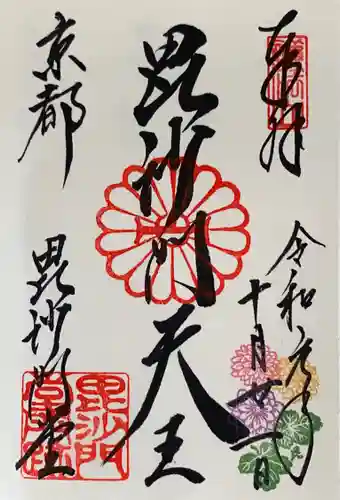 奉拝
令和元年
十月廿一日
毘沙門天王
京都
毘沙門堂
毘沙門
堂跡